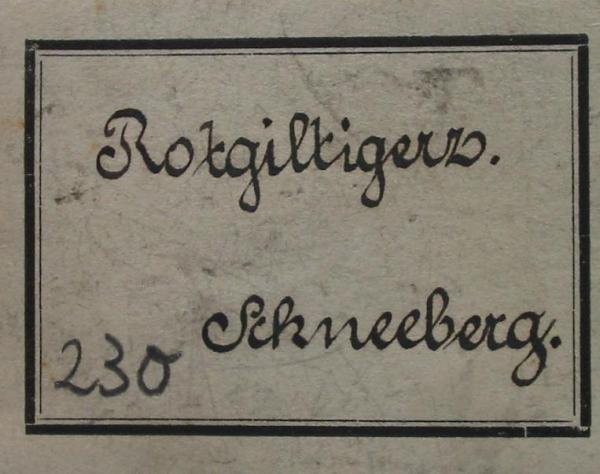 Rotgiltigerz.
Schneeberg.
230